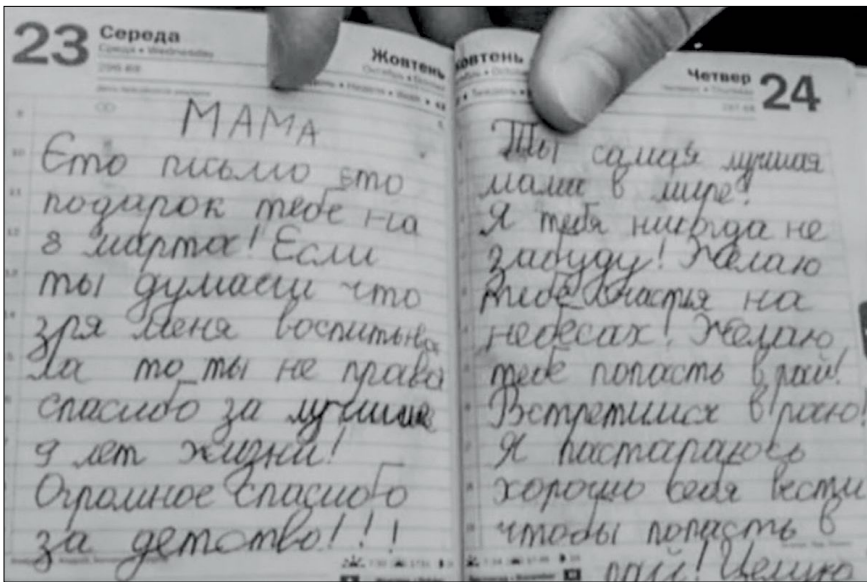 23 Середа
Середа • Wednesday
Жовтень
МАМА
Єто письмо ето
подарок тебе на
8 марта! Если
ты думаеш что
зря меня воспитыва
ла то ты не права
спасибо за лучшие
9 лет жизни!
Огромное спасибо
за детство!!!
Жовтень
Четвер 24
Ты самая лучшая
мама в мире!
Я тебя никогда не
забуду! Желаю
тебе счастья на
небесах! Желаю
тебе попасть в рай!
Встретимся в раю!
Я пастараюсь
хорошо себя вести
чтобы попасть в
рай! Целую